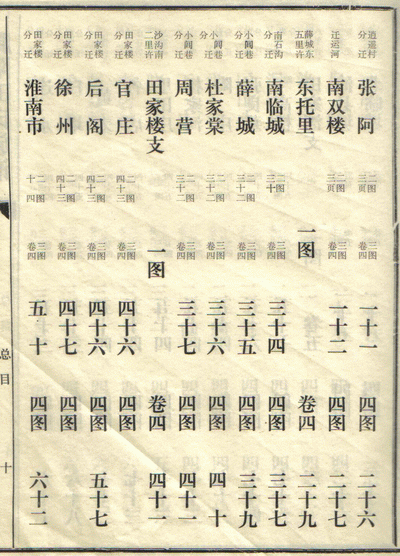 分迁 张阿 二图三页 三图卷四 一十一 四图 二十六
迁运河 南双楼 二图三页 三图卷四 一十二 四图
薛城东五里许 东托里 一图 卷四 二十九
南石沟分迁 南临城 二图 三图卷四 三十四 四图 三十九
小闾巷分迁 薛城 二图 三图卷四 三十五 四图 三十九
小闾巷分迁 杜家棠 二图 三图卷四 三十六 四图 四十
小闾巷分迁 周营 二图 三图卷四 三十七 四图 四十一
沙沟南二里许 田家楼支 一图 卷四 四十一
田家楼分迁 官庄 二图 三图卷四 四十六 四图
田家楼分迁 后阁 二图 三图卷四 四十六 四图 五十七
田家楼分迁 徐州 二图 三图卷四 四十七 四图
田家楼分迁 淮南市 二图 三图卷四 五十 四图 六十二
总目 十